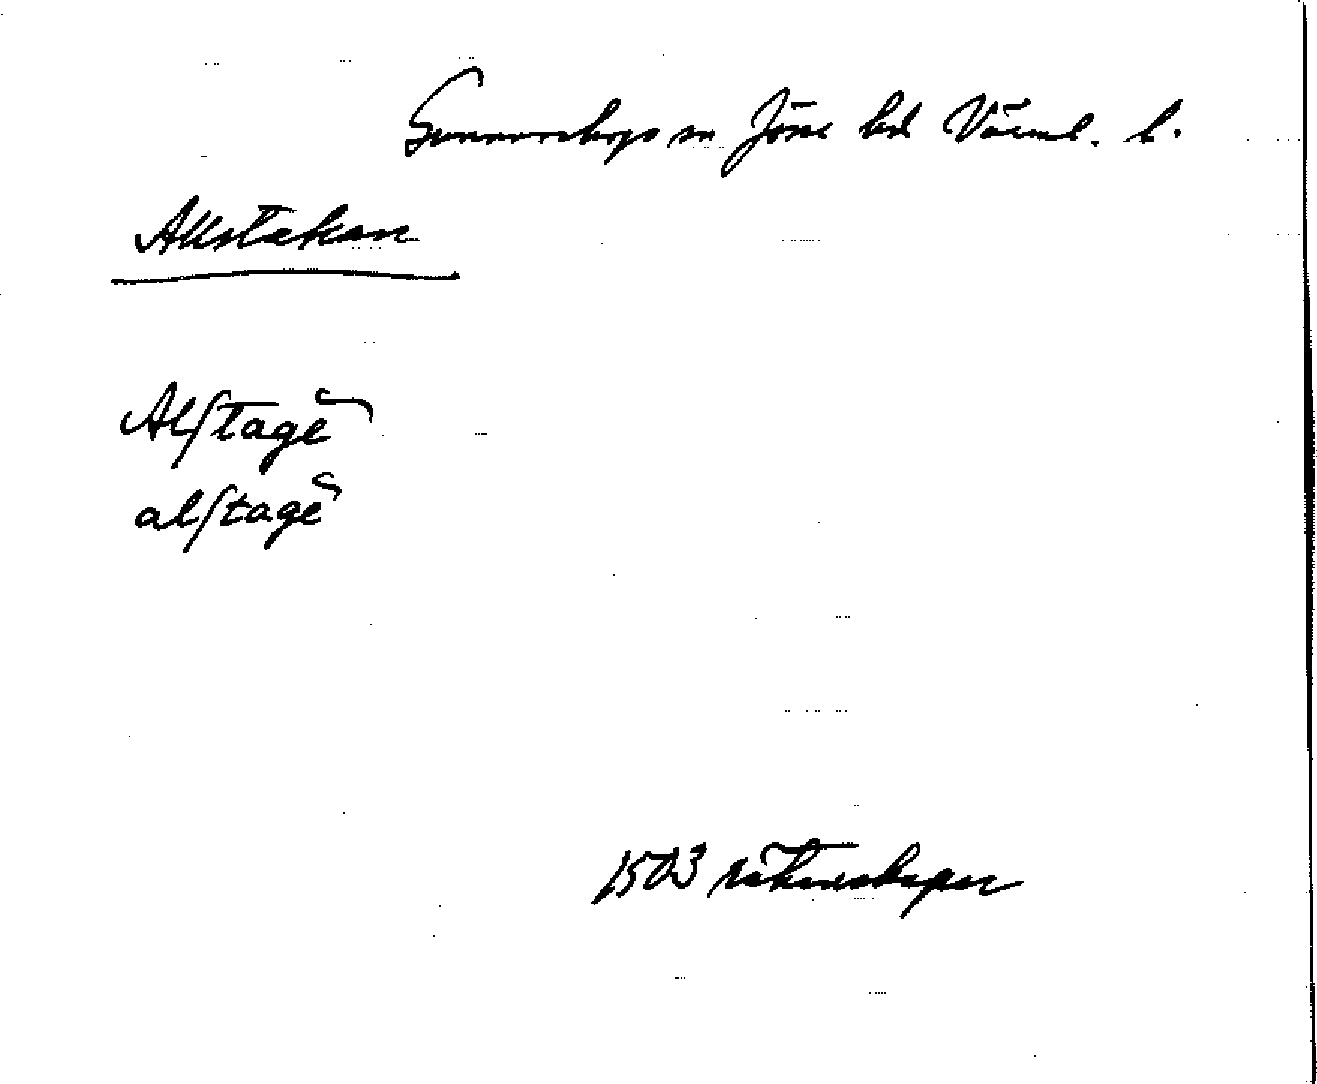 Gunnarskogs sn Jösse hd Värml. l.
Allstakan
Alſtagē
alſtagē
1503 räkenskaper